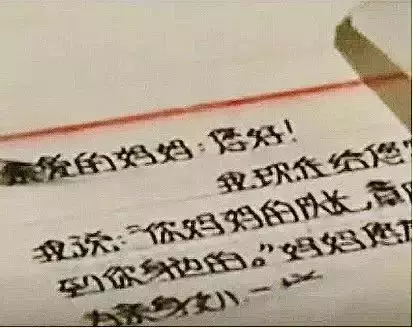 爱的妈妈：您好！
我现在给您
我说：“你妈妈的队长，
到你身边的。”妈妈您